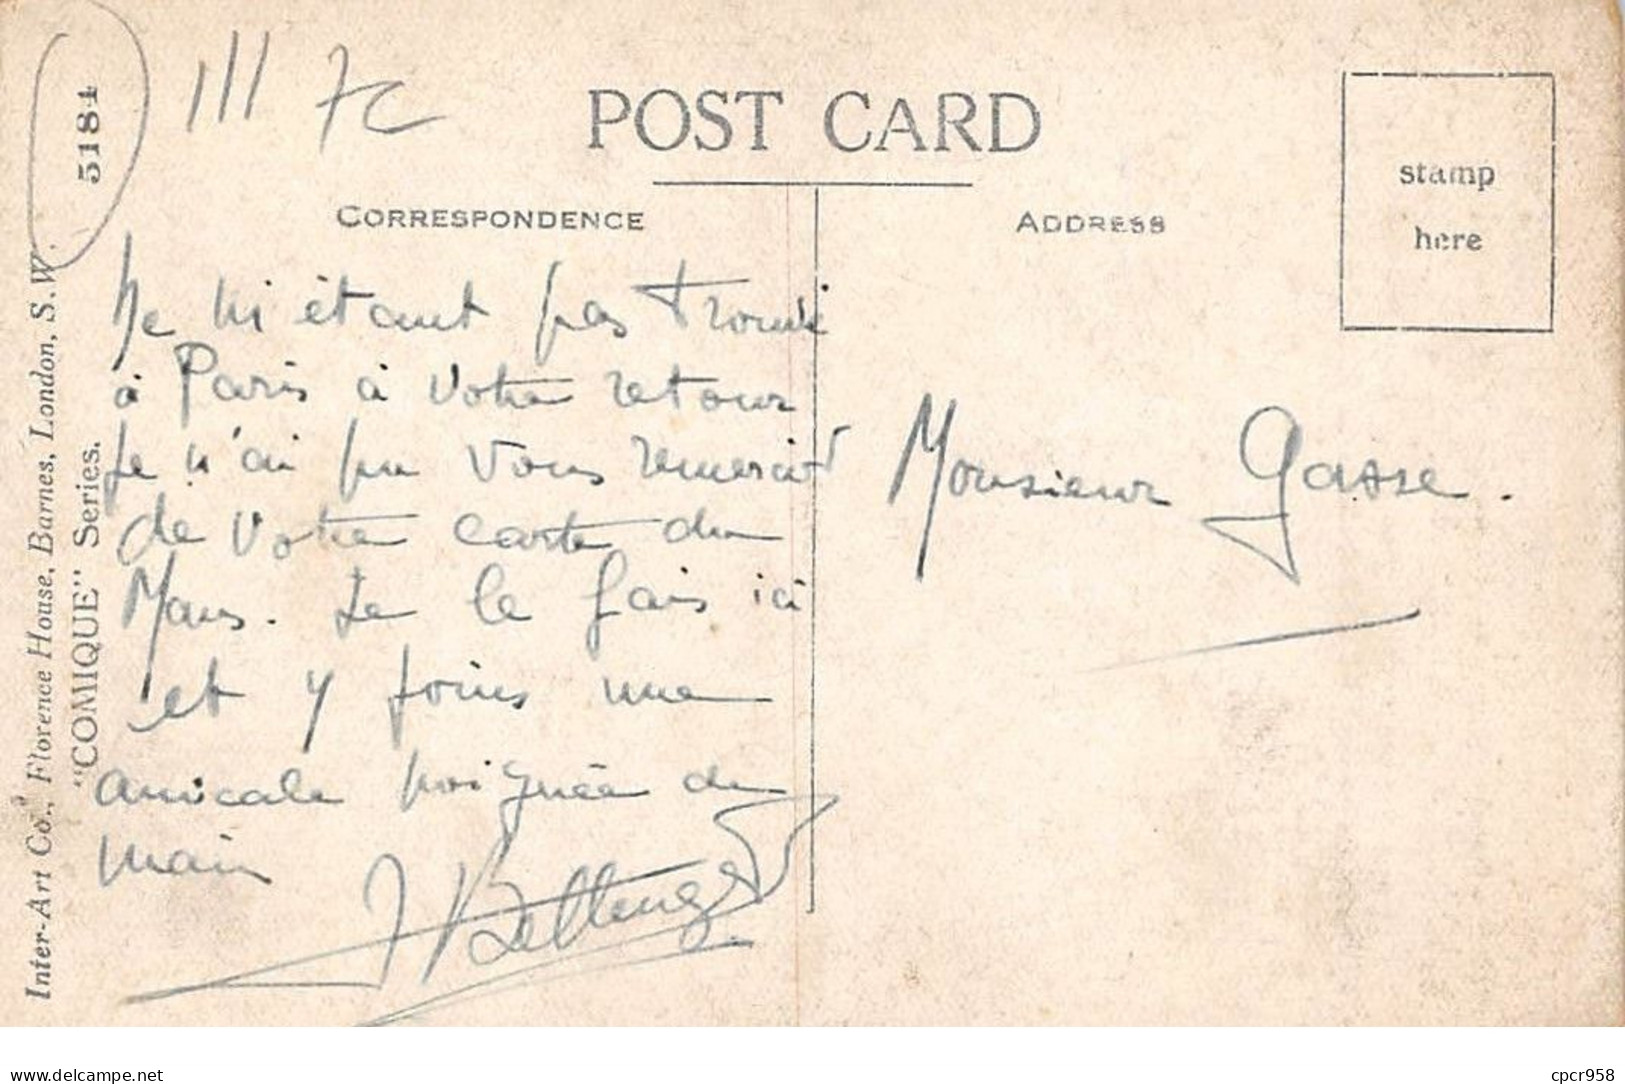 III 7c
5184
POST CARD
stamp
here
CORRESPONDENCE
ADDRESS
Ne m'étant pas trouvé
à Paris à votre retour
Je n'ai pu vous remercier
de votre carte du
Mans. Je le fais ici
et y joins une
amicale poignée de
main
J Bellenger
Monsieur Gasse.
Inter-Art Co., Florence House, Barnes, London, S.W.
"COMIQUE" Series.
www.delcampe.net
cpcr958